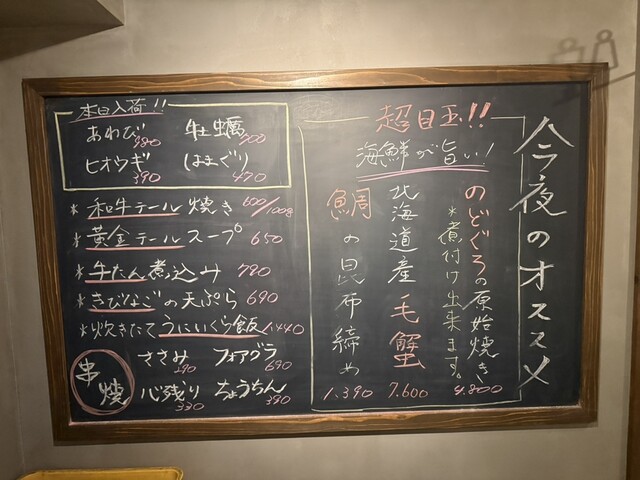 今夜のオススメ
超目玉!!
海鮮が旨い!
のどぐろの原始焼き
*煮付け出来ます。
4.800
北海道産毛蟹
7.600
鯛の昆布締め
1.390
本日入荷!!
あわび 980
牡蠣 700
ヒオウギ 390
はまぐり 470
*和牛テール焼き 600/100g
*黄金テールスープ 650
*牛たん煮込み 790
*きびなごの天ぷら 690
*炊きたてうにいくら飯 1.440
串焼
ささみ 290
フォアグラ 690
心残り 330
ちょうちん 390